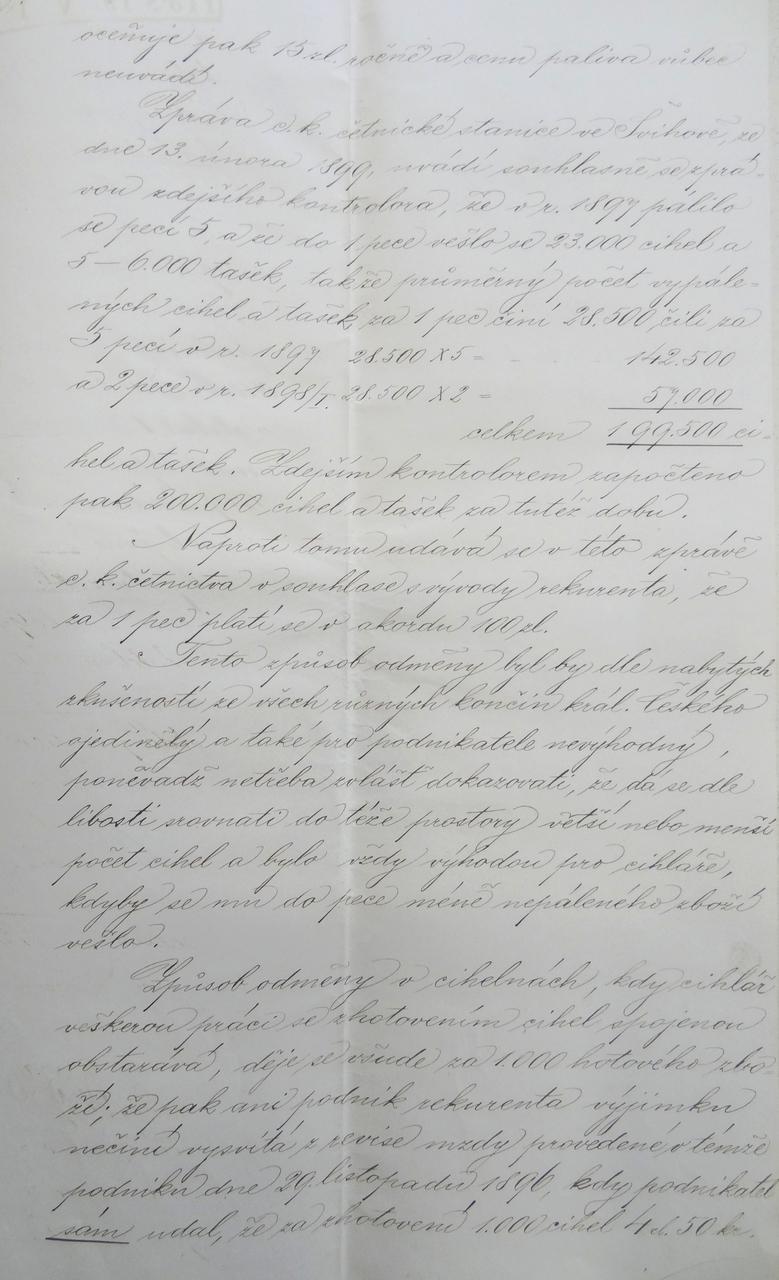 oceňuje pak 15 zl. ročně a cenu paliva vůbec
neuvádí.
Zpráva c. k. četnické stanice ve Švihově, ze
dne 13. února 1899, uvádí souhlasně se zprá-
vou zdejšího kontrolora, že v r. 1897 pálilo
se pecí 5, a že do 1 pece vešlo se 23.000 cihel a
5 – 6.000 tašek, takže průměrný počet vypále-
ných cihel a tašek za 1 pec činí 28.500 čili za
5 pecí v r. 1897 28.500 X 5 = 142.500
a 2 pece v r. 1898/I. 28.500 X 2 = 57.000
celkem 199.500 ci-
hel a tašek. Zdejším kontrolorem započteno
pak 200.000 cihel a tašek za tutéž dobu.
Naproti tomu udává se v této zprávě
c. k. četnictva v souhlase s vývody rekurenta, že
za 1 pec platí se v akordu 100 zl.
Tento způsob odměny byl by dle nabytých
zkušeností ze všech různých končin král. Českého
ojedinělý a také pro podnikatele nevýhodný,
poněvadž netřeba zvlášť dokazovati, že dá se dle
libosti srovnati do téže prostory větší nebo menší
počet cihel a bylo vždy výhodou pro cihláře,
kdyby se mu do pece méně nepáleného zboží
vešlo.
Způsob odměny v cihelnách, kdy cihlář
veškerou práci se zhotovením cihel spojenou
obstarává, děje se všude za 1.000 hotového zbo-
ží; že pak ani podnik rekurenta výjimku
nečiní vysvítá z revise mzdy provedené v témže
podniku dne 29. listopadu 1896, kdy podnikatel
sám udal, že za zhotovení 1.000 cihel 4 zl. 50 kr.